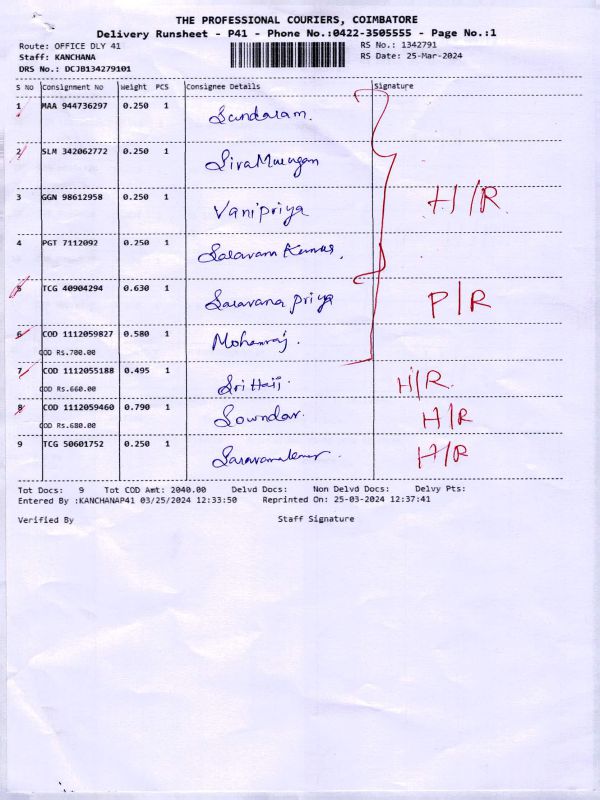 THE PROFESSIONAL COURIERS, COIMBATORE
Delivery Runsheet - P41 - Phone No.:0422-3505555 - Page No.:1
Route: OFFICE DLY 41 RS No.: 1342791
Staff: KANCHANA RS Date: 25-Mar-2024
DRS No.: DCJB134279101
S No Consignment No Weight PCS Consignee Details Signature
1 MAA 944736297 0.250 1 Sundaram.
2 SLM 342062772 0.250 1 SivaMurugan
3 GGN 98612958 0.250 1 Vanipriya H/R
4 PGT 7112092 0.250 1 Saravana Kumar.
5 TCG 40904294 0.630 1 Saravana priya P/R
6 COD 1112059827 0.580 1 Mohanraj.
COD Rs.700.00
7 COD 1112055188 0.495 1 Sri Hari. H/R.
COD Rs.660.00
8 COD 1112059460 0.790 1 Sowndar. H/R
COD Rs.680.00
9 TCG 50601752 0.250 1 Saravanakumar. H/R
Tot Docs: 9 Tot COD Amt: 2040.00 Delvd Docs: Non Delvd Docs: Delvy Pts:
Entered By :KANCHANAP41 03/25/2024 12:33:50 Reprinted On: 25-03-2024 12:37:41
Verified By Staff Signature